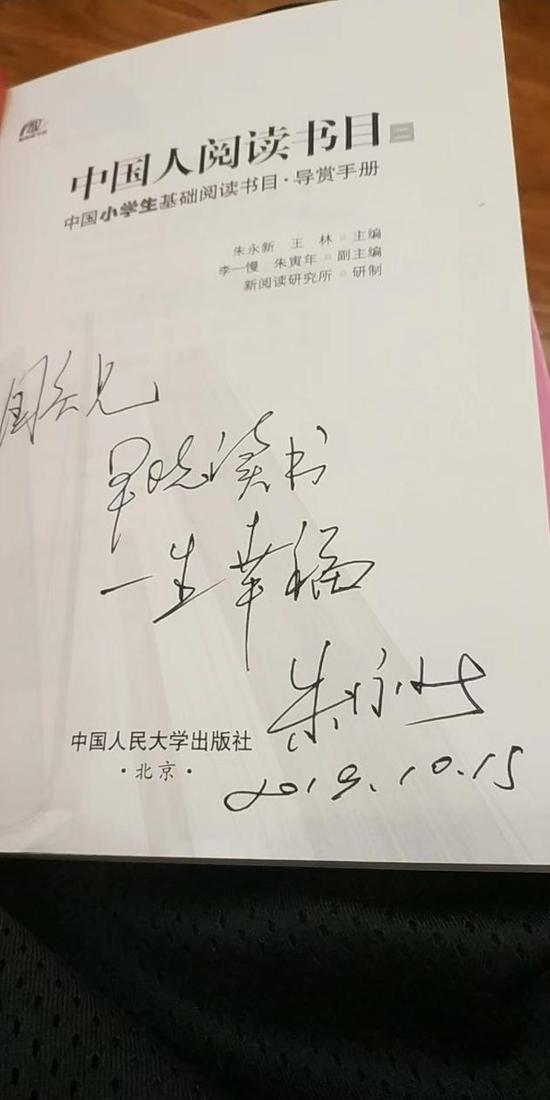 中国人阅读书目 二
中国小学生基础阅读书目·导赏手册
朱永新 王林 ○ 主编
李一慢 朱寅年 ○ 副主编
新阅读研究所 ○ 研制
兄
早晚读书
一生幸福
朱永新
中国人民大学出版社
·北京·
2019.10.15